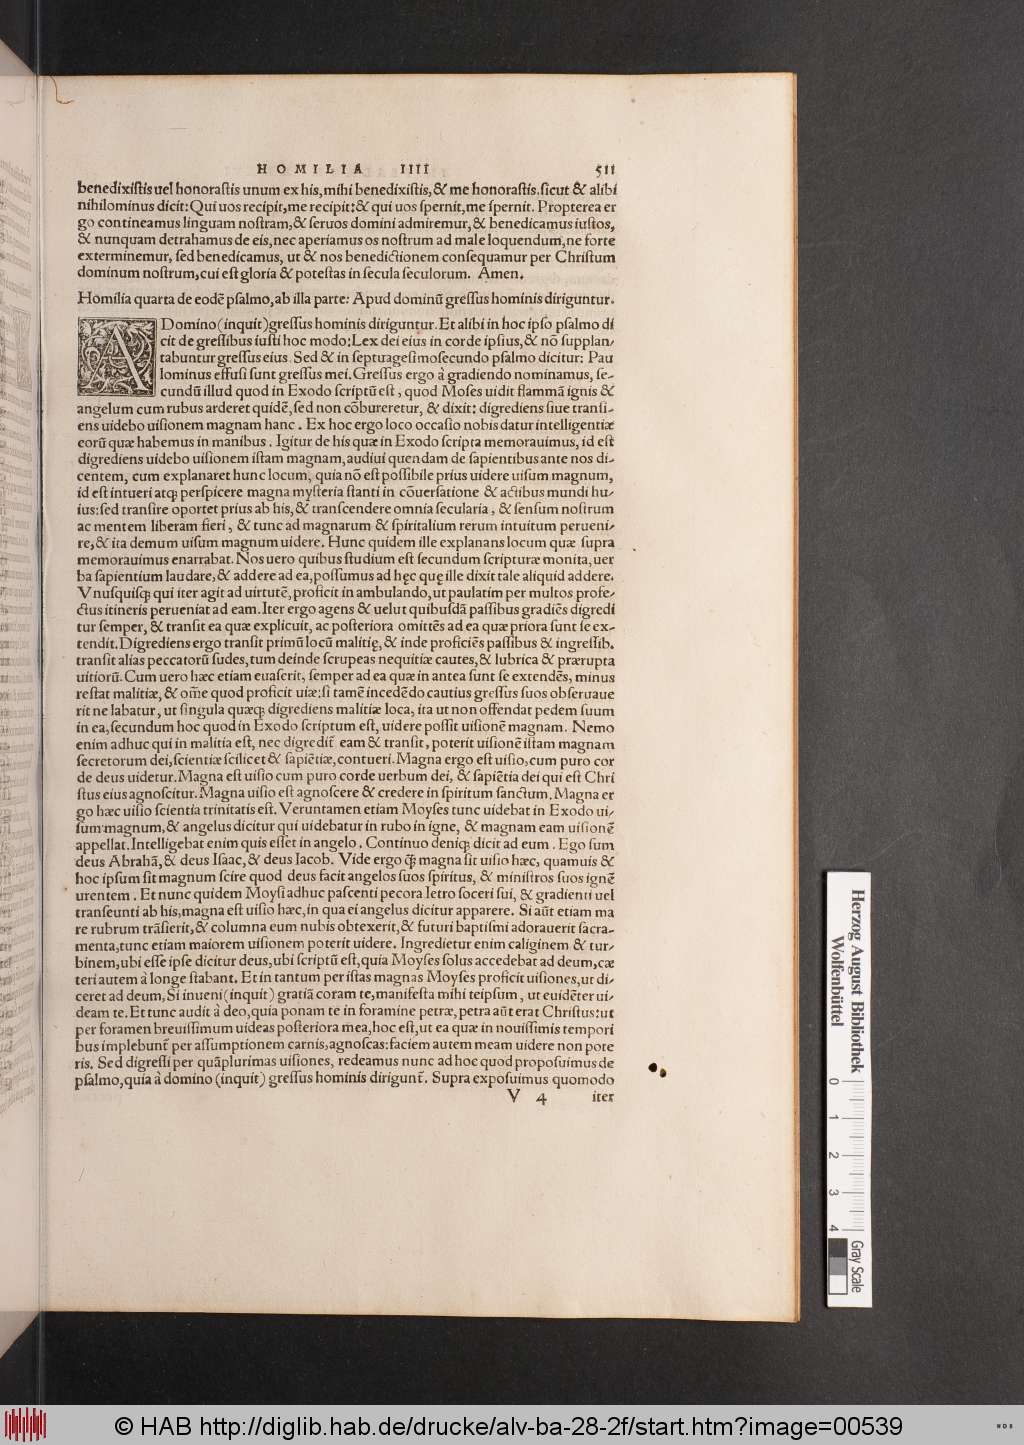 HOMILIA IIII 511
benedixistis uel honorastis unum ex his, mihi benedixistis, & me honorastis. sicut & alibi
nihilominus dicit: Qui uos recipit, me recipit: & qui uos spernit, me spernit. Propterea er
go contineamus linguam nostram, & seruos domini admiremur, & benedicamus iustos,
& nunquam detrahamus de eis, nec aperiamus os nostrum ad male loquendum, ne forte
exterminemur, sed benedicamus, ut & nos benedictionem consequamur per Christum
dominum nostrum, cui est gloria & potestas in secula seculorum. Amen.
Homilia quarta de eodē psalmo, ab illa parte: Apud dominū gressus hominis diriguntur.
A Domino (inquit) gressus hominis diriguntur. Et alibi in hoc ipso psalmo di
cit de gressibus iusti hoc modo: Lex dei eius in corde ipsius, & nō supplan-
tabuntur gressus eius. Sed & in septuagesimosecundo psalmo dicitur: Pau
lominus effusi sunt gressus mei. Gressus ergo à gradiendo nominamus, se-
cundū illud quod in Exodo scriptū est, quod Moses uidit flammā ignis &
angelum cum rubus arderet quidē, sed non cōbureretur, & dixit: digrediens siue transi-
ens uidebo uisionem magnam hanc. Ex hoc ergo loco occasio nobis datur intelligentiæ
eorū quæ habemus in manibus. Igitur de his quæ in Exodo scripta memorauimus, id est
digrediens uidebo uisionem istam magnam, audiui quendam de sapientibus ante nos di-
centem, cum explanaret hunc locum, quia nō est possibile prius uidere uisum magnum,
id est intueri atq; perspicere magna mysteria stanti in cōuersatione & actibus mundi hu-
ius: sed transire oportet prius ab his, & transcendere omnia secularia, & sensum nostrum
ac mentem liberam fieri, & tunc ad magnarum & spiritalium rerum intuitum perueni-
re, & ita demum uisum magnum uidere. Hunc quidem ille explanans locum quæ supra
memorauimus enarrabat. Nos uero quibus studium est secundum scripturæ monita, uer
ba sapientium laudare, & addere ad ea, possumus ad hęc quę ille dixit tale aliquid addere.
Vnusquisq; qui iter agit ad uirtutē, proficit in ambulando, ut paulatim per multos profe-
ctus itineris perueniat ad eam. Iter ergo agens & uelut quibusdā passibus gradiēs digredi
tur semper, & transit ea quæ explicuit, ac posteriora omittēs ad ea quæ priora sunt se ex-
tendit. Digrediens ergo transit primū locū malitię, & inde proficiēs passibus & ingressib.
transit alias peccatorū sudes, tum deinde scrupeas nequitiæ cautes, & lubrica & prærupta
uitiorū. Cum uero hæc etiam euaserit, semper ad ea quæ in antea sunt se extendēs, minus
restat malitiæ, & om̄e quod proficit uiæ: si tamē incedēdo cautius gressus suos obseruaue
rit ne labatur, ut singula quæq; digrediens malitiæ loca, ita ut non offendat pedem suum
in ea, secundum hoc quod in Exodo scriptum est, uidere possit uisionē magnam. Nemo
enim adhuc qui in malitia est, nec digredit̄ eam & transit, poterit uisionē istam magnam
secretorum dei, scientiæ scilicet & sapiētiæ, contueri. Magna ergo est uisio, cum puro cor
de deus uidetur. Magna est uisio cum puro corde uerbum dei, & sapiētia dei qui est Chri
stus eius agnoscitur. Magna uisio est agnoscere & credere in spiritum sanctum. Magna er
go hæc uisio scientia trinitatis est. Veruntamen etiam Moyses tunc uidebat in Exodo ui-
sum magnum, & angelus dicitur qui uidebatur in rubo in igne, & magnam eam uisionē
appellat. Intelligebat enim quis esset in angelo. Continuo deniq; dicit ad eum. Ego sum
deus Abrahā, & deus Isaac, & deus Iacob. Vide ergo q̃; magna sit uisio hæc, quamuis &
hoc ipsum sit magnum scire quod deus facit angelos suos spiritus, & ministros suos ignē
urentem. Et nunc quidem Moysi adhuc pascenti pecora Ietro soceri sui, & gradienti uel
transeunti ab his, magna est uisio hæc, in qua ei angelus dicitur apparere. Si aūt etiam ma
re rubrum trāsierit, & columna eum nubis obtexerit, & futuri baptismi adorauerit sacra-
menta, tunc etiam maiorem uisionem poterit uidere. Ingredietur enim caliginem & tur-
binem, ubi esse ipse dicitur deus, ubi scriptū est, quia Moyses solus accedebat ad deum, cæ
teri autem à longe stabant. Et in tantum per istas magnas Moyses proficit uisiones, ut di-
ceret ad deum, Si inueni (inquit) gratiā coram te, manifesta mihi teipsum, ut euidēter ui-
deam te. Et tunc audit à deo, quia ponam te in foramine petræ, petra aūt erat Christus: ut
per foramen breuissimum uideas posteriora mea, hoc est, ut ea quæ in nouissimis tempori
bus implebunt̄ per assumptionem carnis, agnoscas: faciem autem meam uidere non pote
ris. Sed digressi per quāplurimas uisiones, redeamus nunc ad hoc quod proposuimus de
psalmo, quia à domino (inquit) gressus hominis dirigunt̄. Supra exposuimus quomodo
V 4 iter
Herzog August Bibliothek
Wolfenbüttel
0 1 2 3 4
Gray Scale
© HAB http://diglib.hab.de/drucke/alv-ba-28-2f/start.htm?image=00539